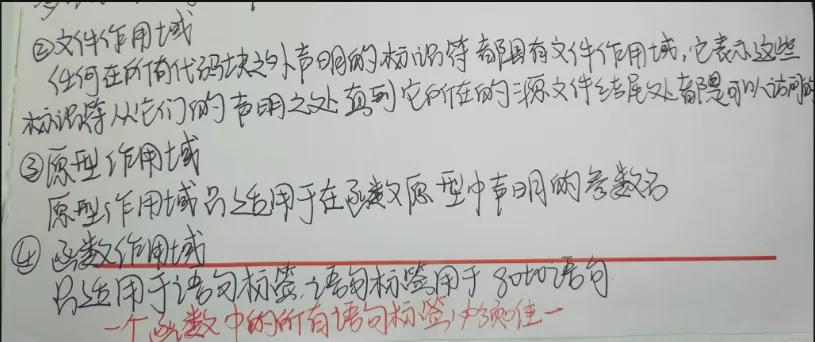 ②文件作用域
任何在所有代码块之外声明的标识符都具有文件作用域,它表示这些
标识符从它们的声明之处直到它所在的源文件结尾处都是可以访问的
③原型作用域
原型作用域只适用于在函数原型中声明的参数名
④函数作用域
只适用于语句标签,语句标签用于goto语句
一个函数中的所有语句标签必须唯一